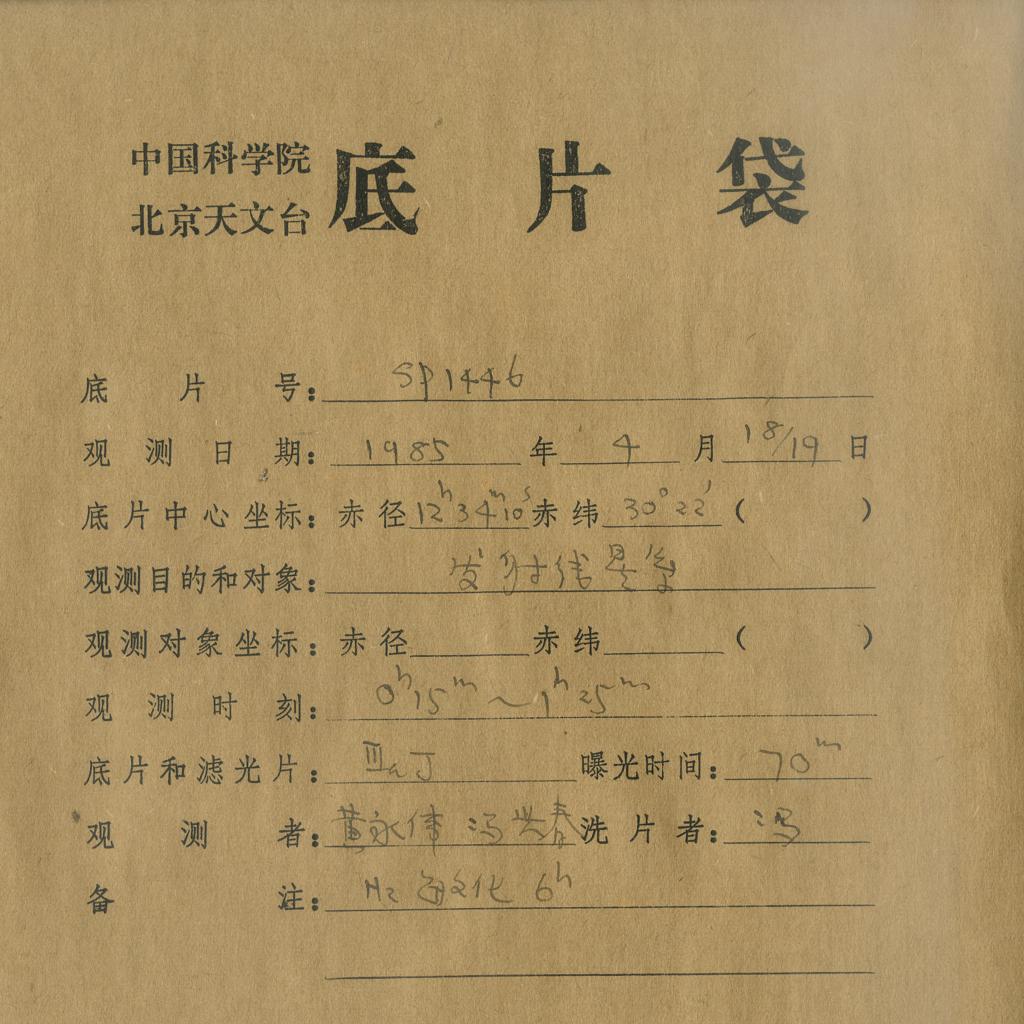 中国科学院
北京天文台
底片袋
底片号：SP1446
观测日期：1985年4月18/19日
底片中心坐标：赤径12ʰ34ᵐ10ˢ赤纬30°22′（ ）
观测目的和对象：发射线星系
观测对象坐标：赤径 赤纬 （ ）
观测时刻：0ʰ15ᵐ～1ʰ25ᵐ
底片和滤光片：ⅢaJ 曝光时间：70ᵐ
观测者：黄永伟 冯兴春 洗片者：冯
备注：H₂敏化 6ʰ